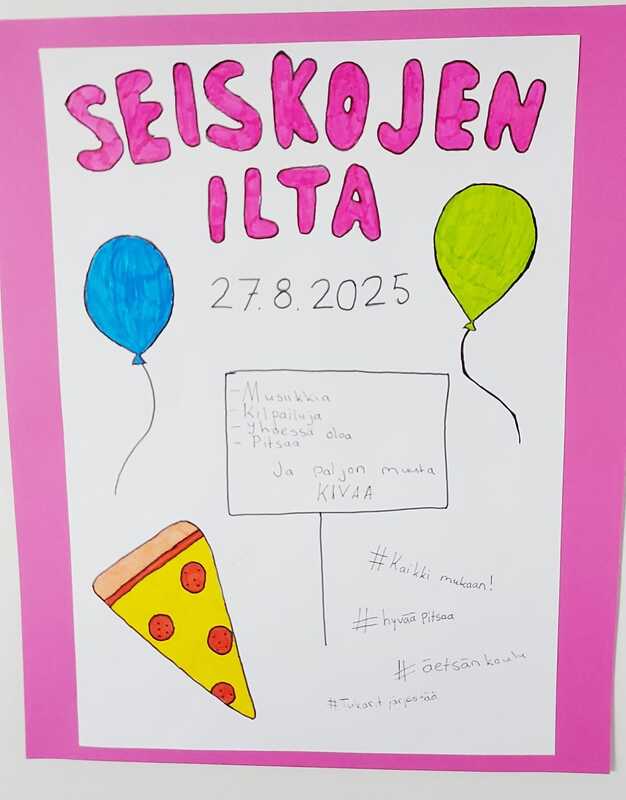 SEISKOJEN
ILTA
27.8.2025
- Musiikkia
- Kilpailuja
- Yhdessä oloa
- Pitsaa
Ja paljon muuta
KIVAA
#Kaikki mukaan!
#hyvää Pitsaa
#äetsänkoulu
#Tukarit järjestää